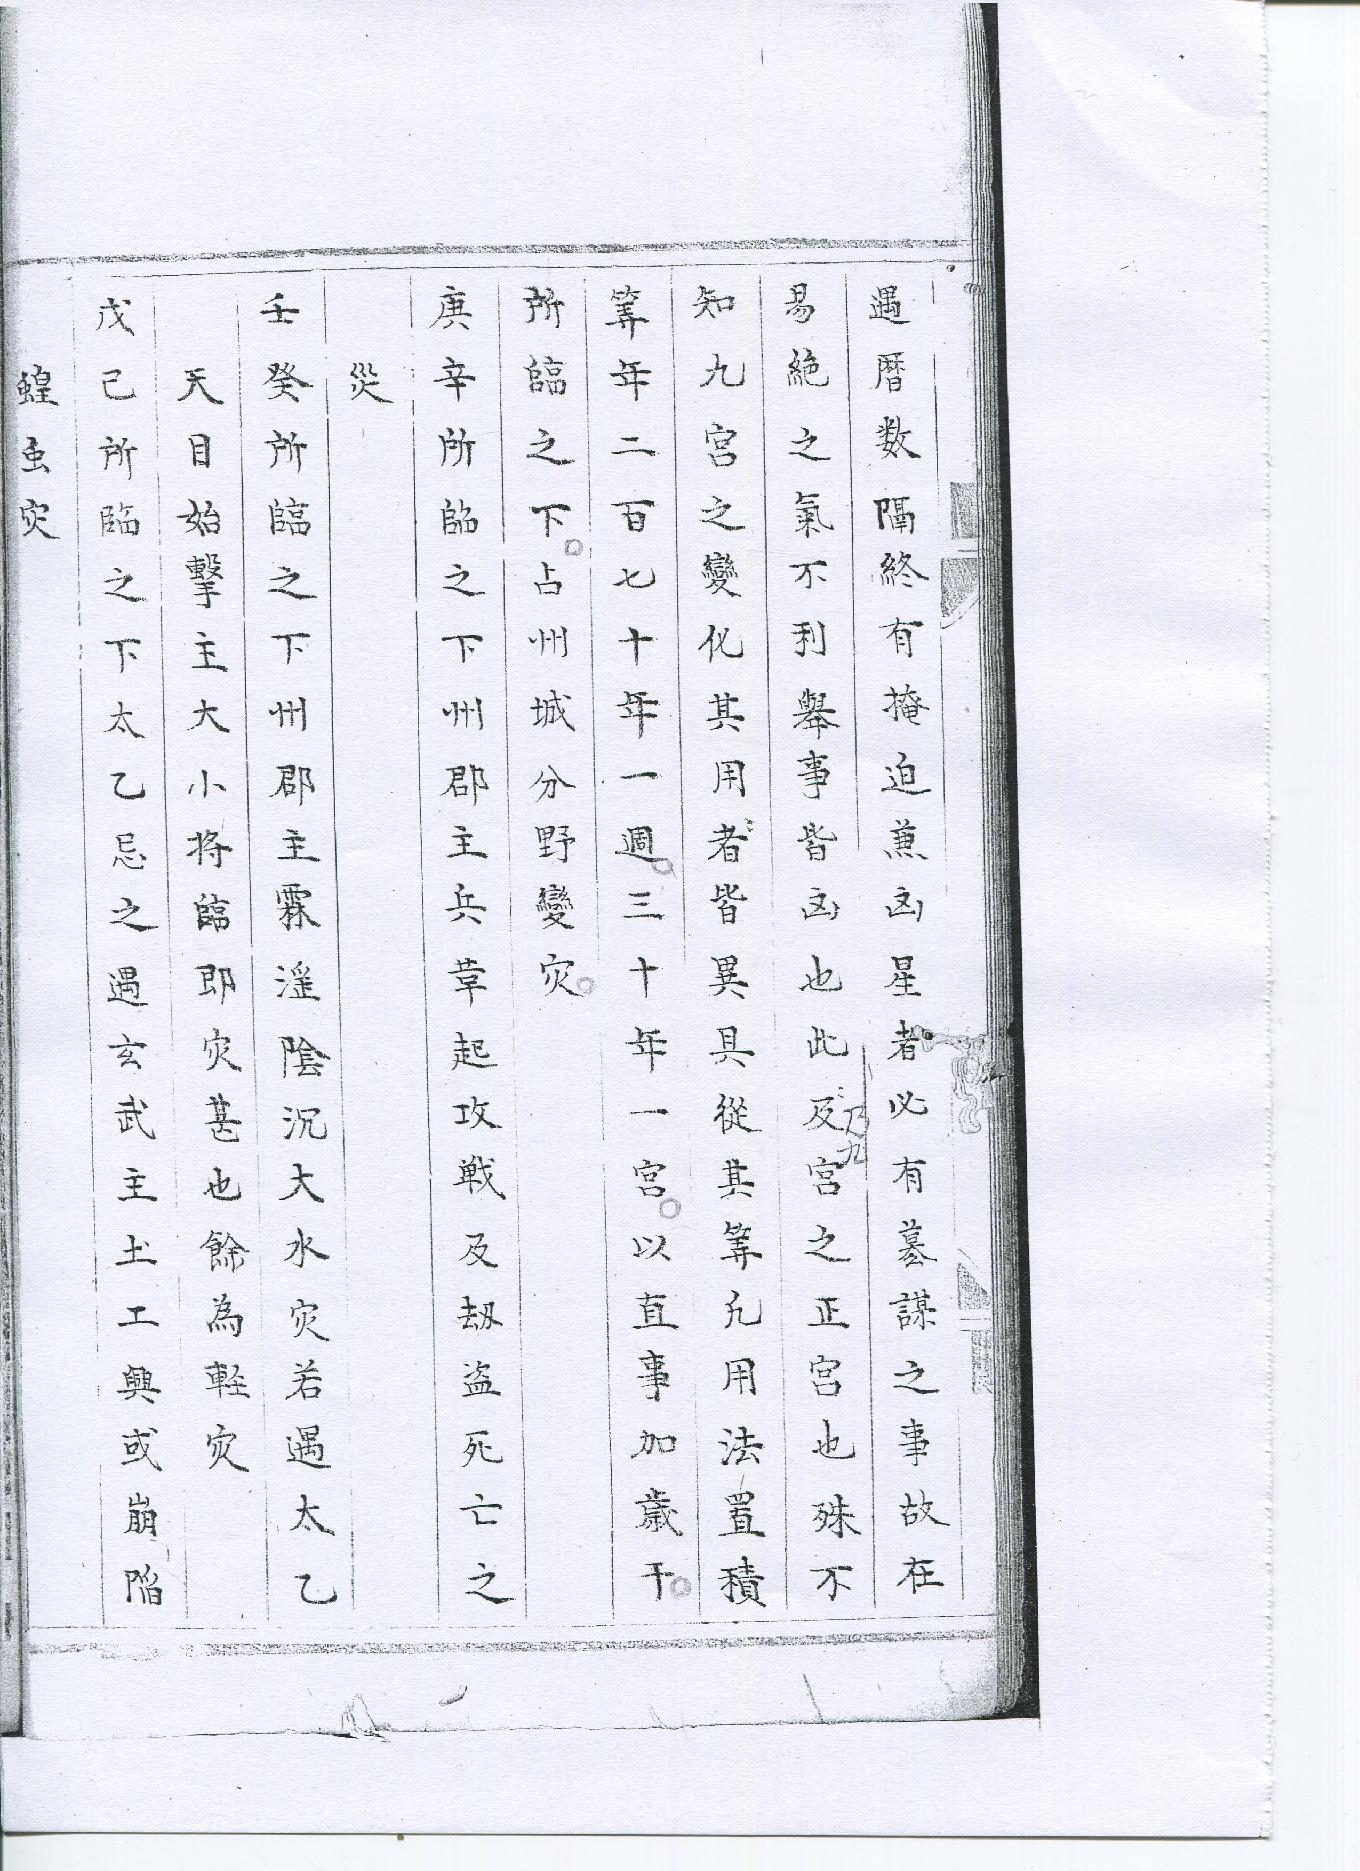 遇曆数隔終有掩迫兼凶星者必有墓謀之事故在
易絶之氣不利舉事皆凶也此及宮之正宮也殊不
乃九
知九宮之變化其用者皆異具從其筭凢用法置積
筭年二百七十年一週三十年一宮以直事加歲干
所臨之下占州城分野變灾
庚辛所臨之下州郡主兵革起攻戦及刼盗死亡之
災
壬癸所臨之下州郡主霖滛陰沉大水灾若遇太乙
天目始擊主大小将臨即灾甚也餘為軽灾
戊己所臨之下太乙忌之遇玄武主土工興或崩陷
蝗虫灾